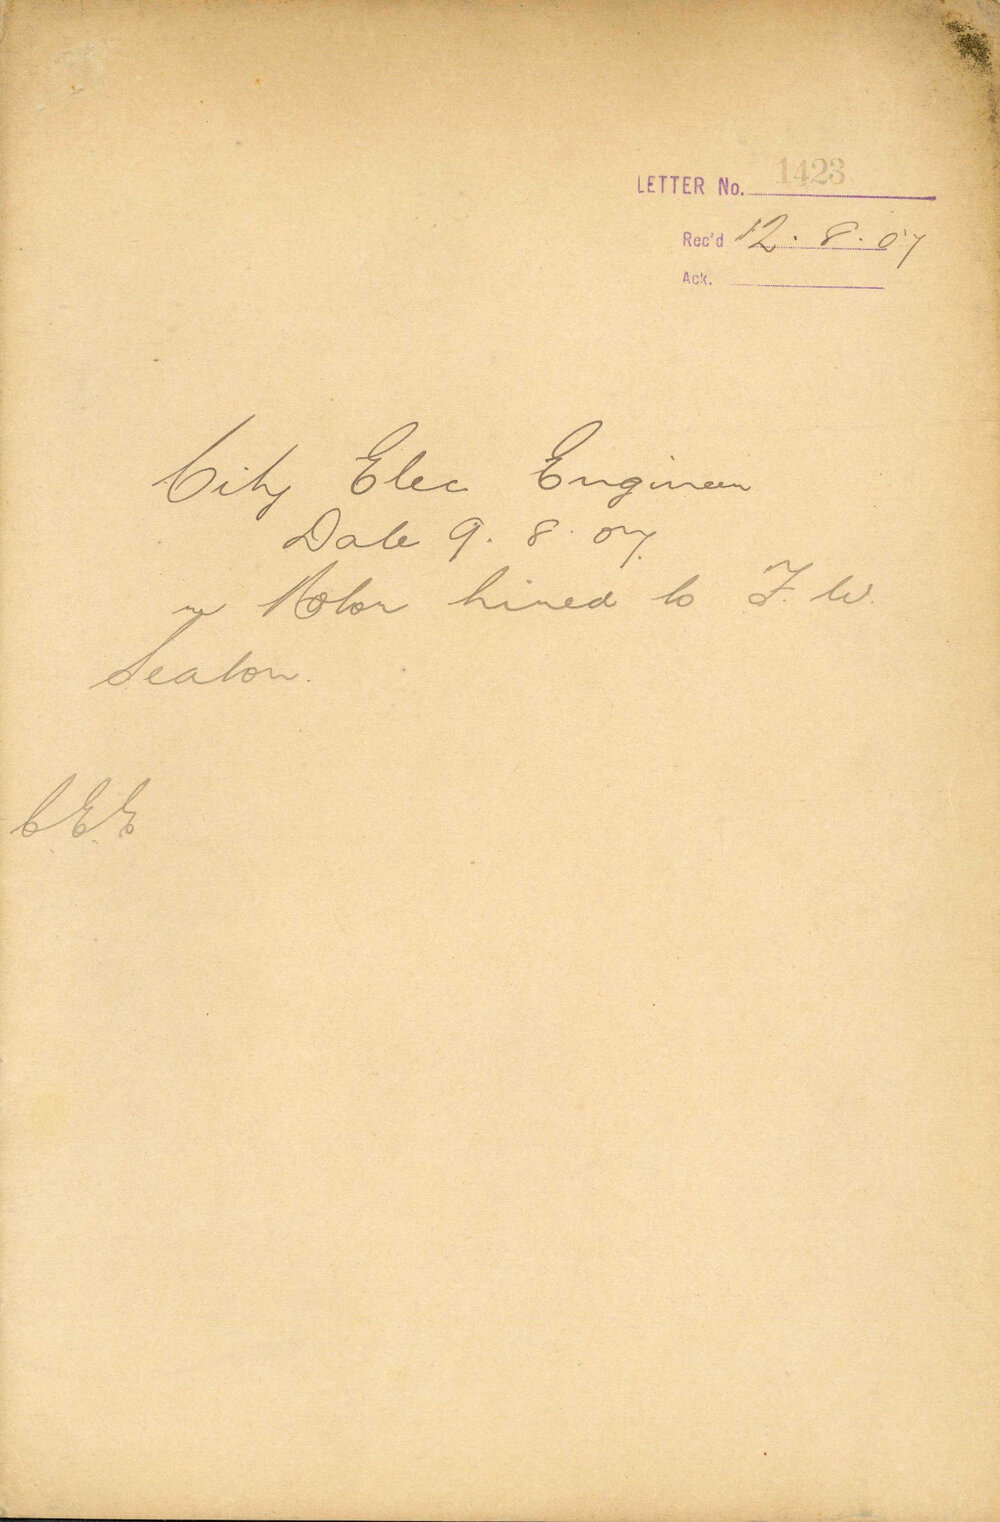 LETTER No. 1423
Rec'd 12. 8. 07
Ack.
City Elec Engineer
Date 9. 8. 07.
re Motor hired to F. W.
Seaton.
C.E.E